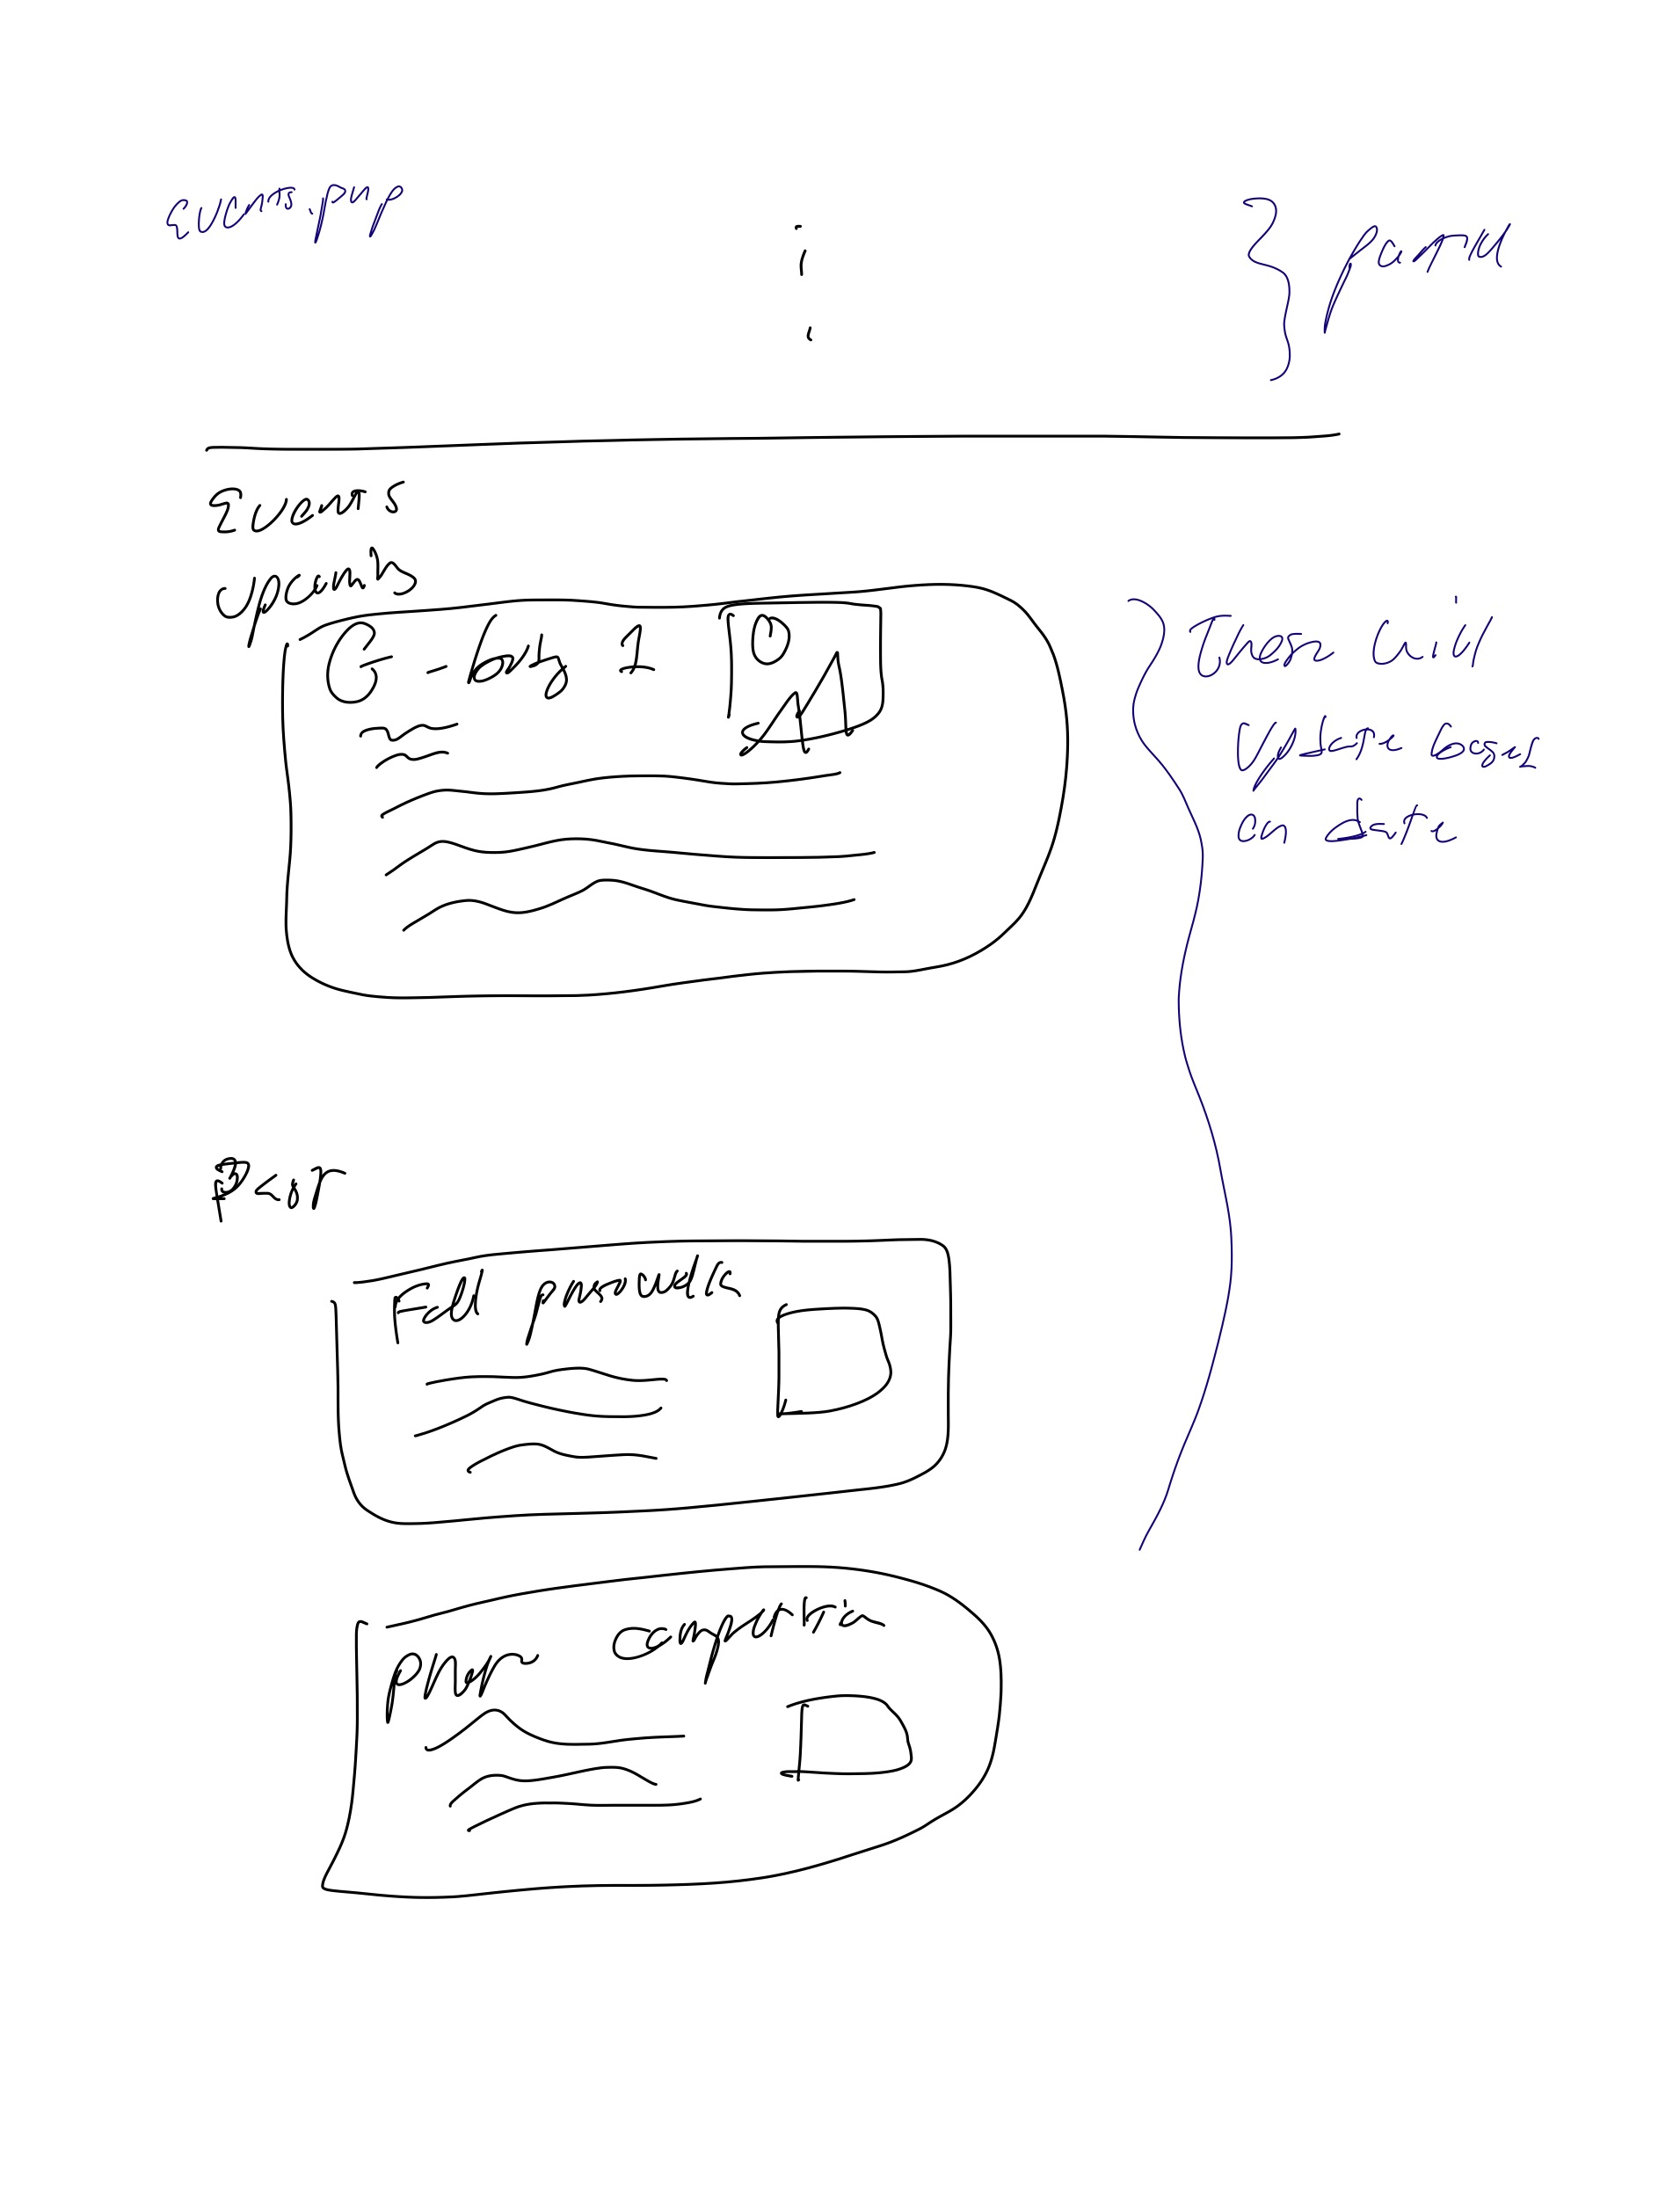 events.php
partial
Events
upcoming
G-body 1
These will
update based
on date
Past
Fall
photo competition